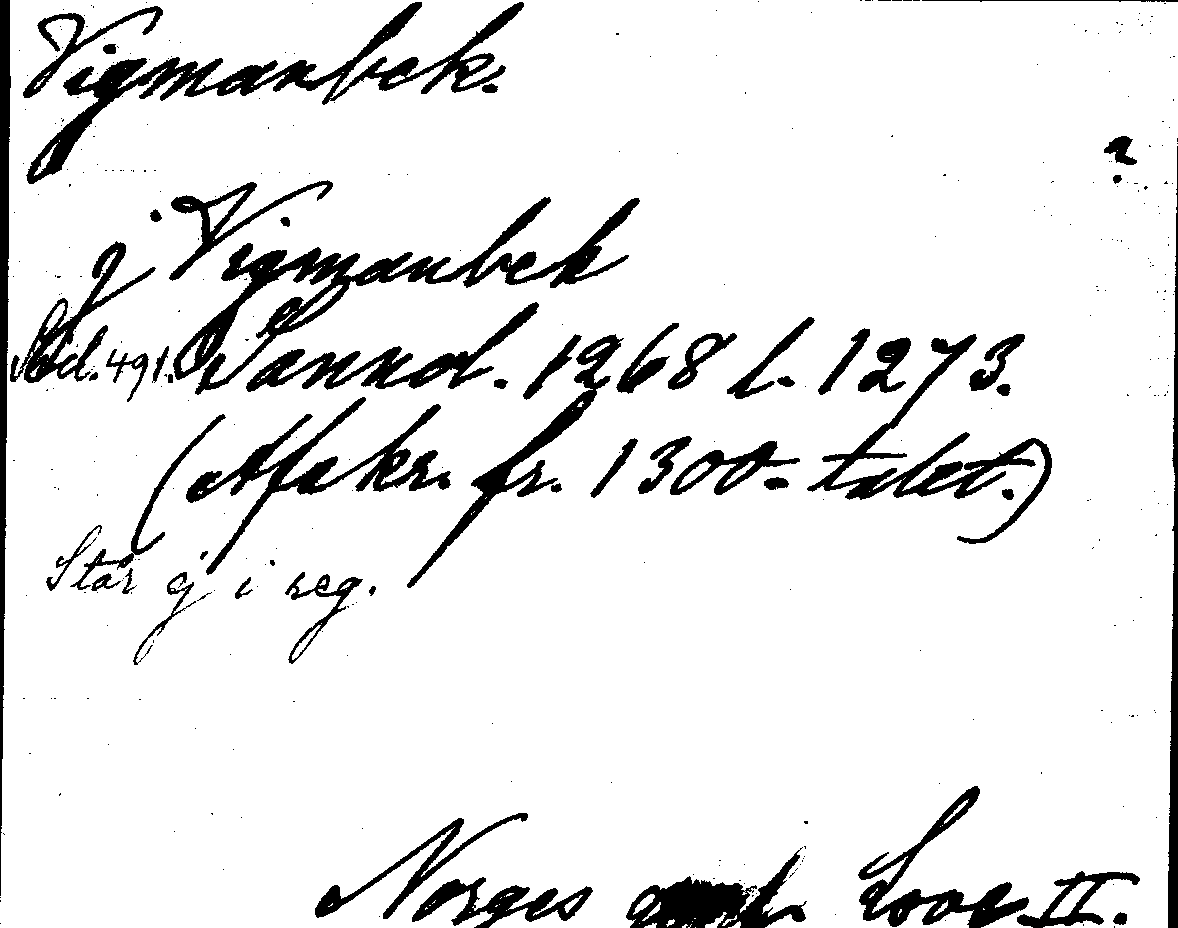 Vigmanbek.
?
j Vigmanbek
Sid. 491. Odat. 1268 l. 1273.
(Afskr. fr. 1300-talet.)
Står ej i reg.
Norges Love II.